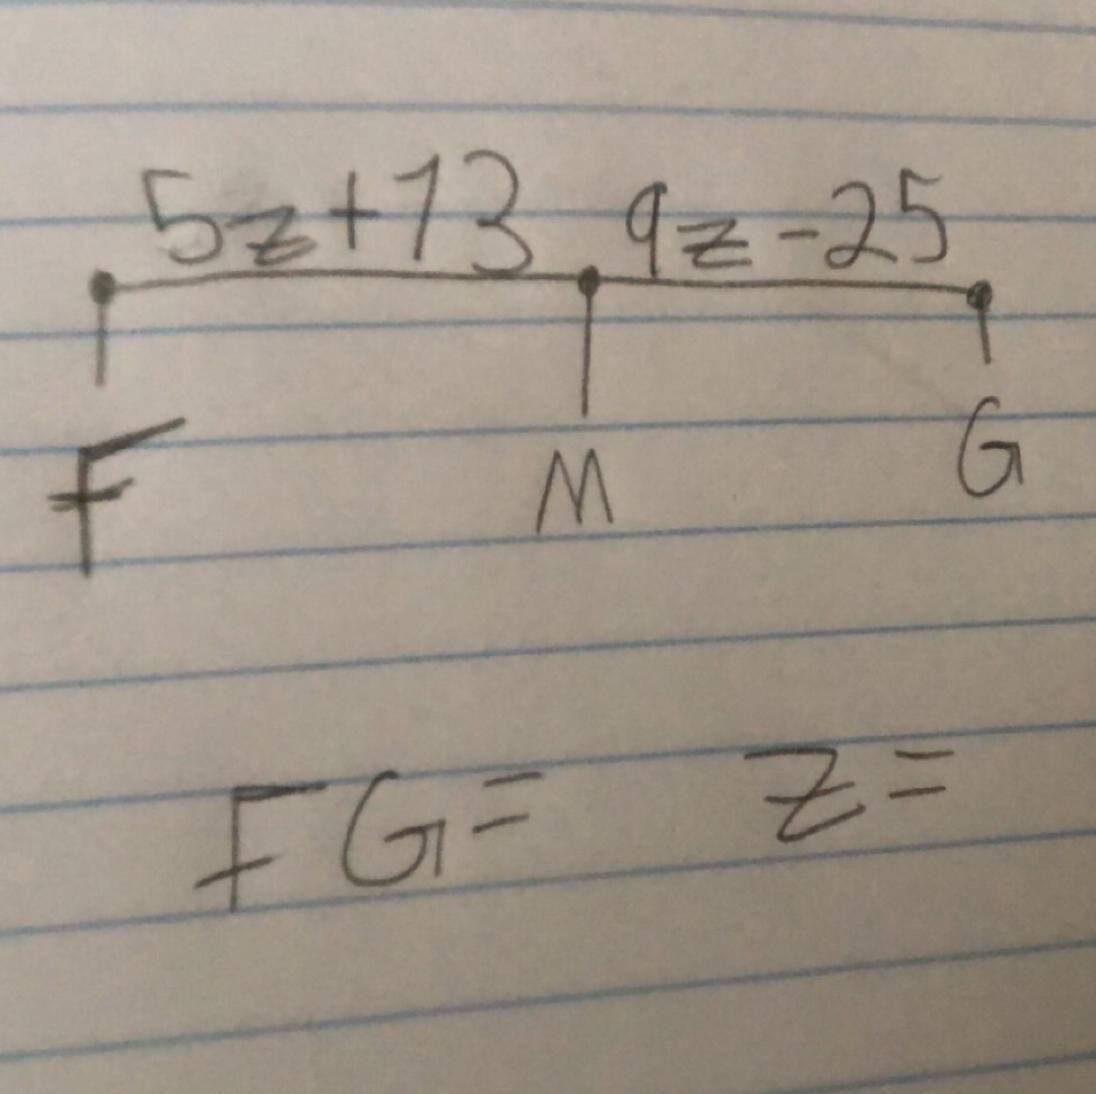 5z+13 9z-25
F M G
FG= z=